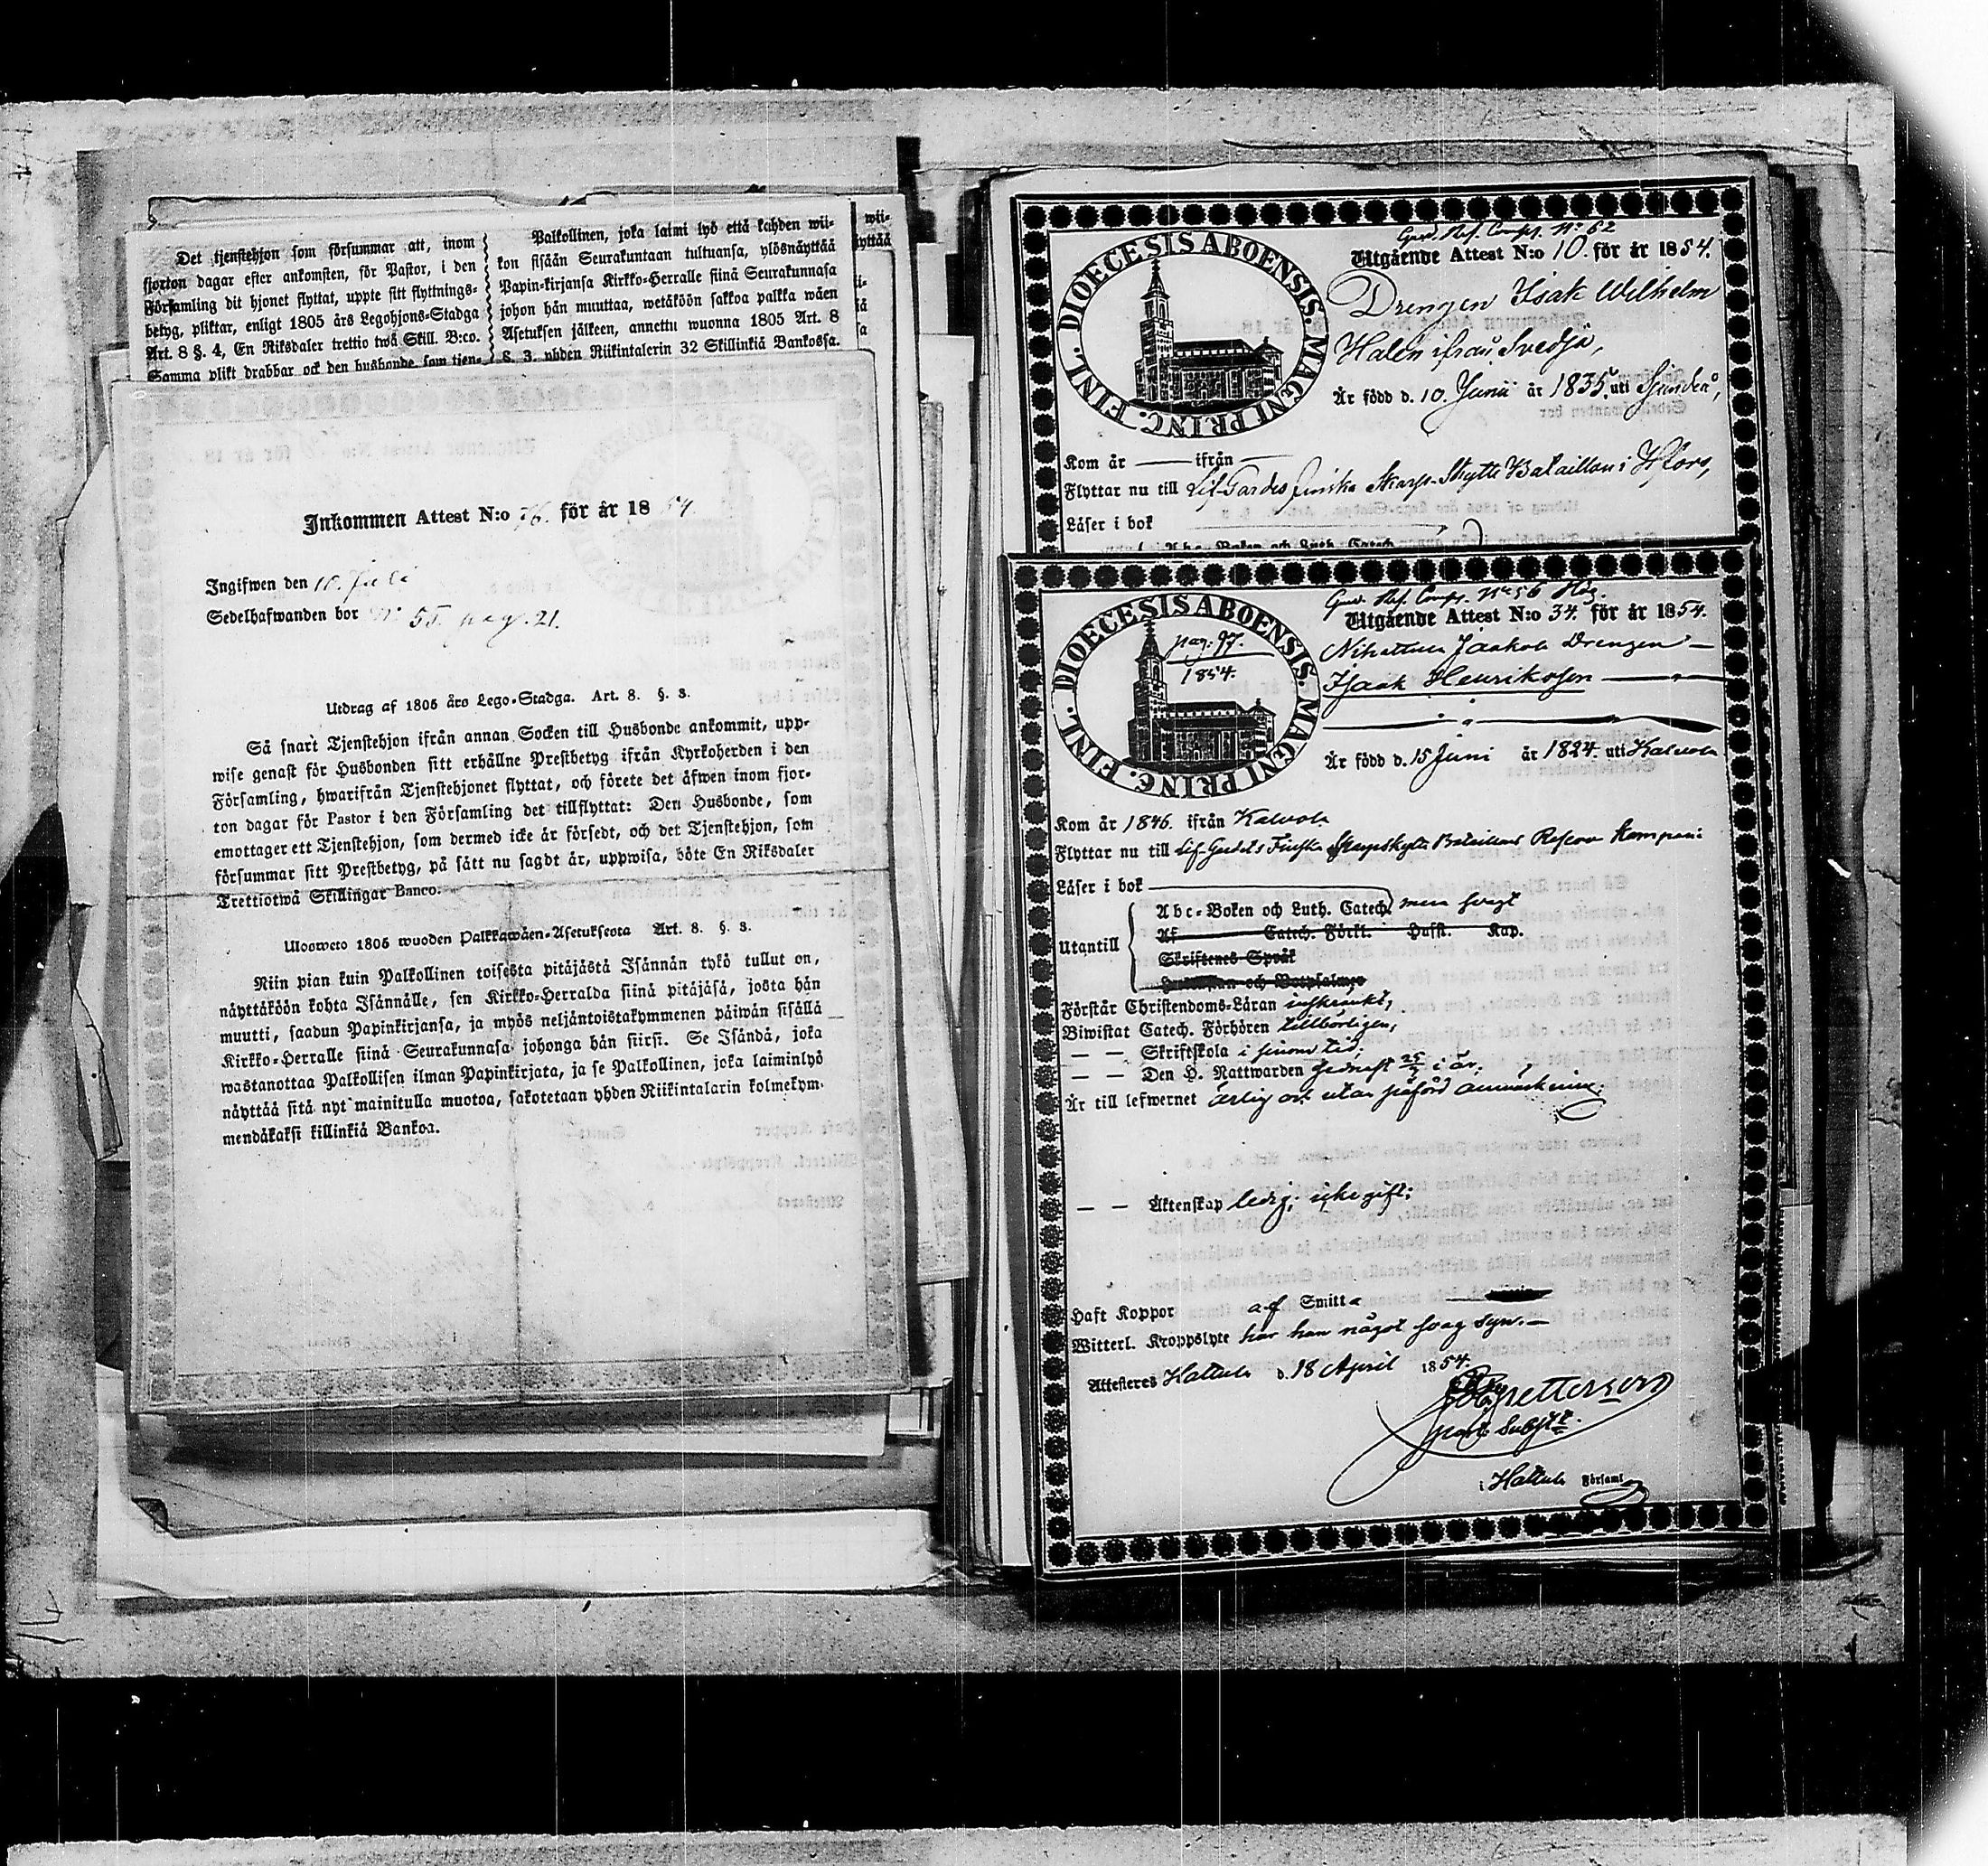 Det tjenstehjon som försummar att, inom
fjorton dagar efter ankomsten, för Pastor, i den
Församling dit hjonet flyttat, uppte sitt flyttnings-
betyg, pliktar, enligt 1805 års Legohjons-Stadga
Art. 8 §. 4, En Riksdaler trettio twå Skill. B:co.
Samma plikt drabbar ock den husbonde som tjen-
Palkollinen, joka laimi lyö että kahden wii-
kon sisään Seurakuntaan tultuansa, ylösnäyttää
Papin-kirjansa Kirkko-Herralle siinä Seurakunnasa
johon hän muuttaa, wetäköön sakkoa palkka wäen
Asetuksen jälkeen, annettu wuonna 1805 Art. 8
§. 3. yhden Riikintalerin 32 Skillinkiä Bankossa.
wii-
äyttää
Inkommen Attest N:o 76. för år 1854.
Ingifwen den 10. Juli
Sedelhafwanden bor N: 55. pag. 21.
Utdrag af 1805 års Lego-Stadga. Art. 8. §. 3.
Så snart Tjenstehjon ifrån annan Socken till Husbonde ankommit, upp-
wise genast för Husbonden sitt erhållne Prestbetyg ifrån Kyrkoherden i den
Församling, hwarifrån Tjenstehjonet flyttat, och förete det äfwen inom fjor-
ton dagar för Pastor i den Församling det tillflyttat: Den Husbonde, som
emottager ett Tjenstehjon, som dermed icke är försedt, och det Tjenstehjon, som
försummar sitt Prestbetyg, på sätt nu sagdt är, uppwisa, böte En Riksdaler
Trettiotwå Skillingar Banco.
Ulosweto 1805 wuoden Palkkawäen-Asetuksesta Art. 8. §. 3.
Niin pian kuin Palkollinen toisesta pitäjästä Isännän tykö tullut on,
näyttäköön kohta Isännälle, sen Kirkko-Herralda siinä pitäjäsä, josta hän
muutti, saadun Papinkirjansa, ja myös neljäntoistakymmenen päiwän sisällä
Kirkko-Herralle siinä Seurakunnasa johonga hän siirsi. Se Isändä, joka
wastanottaa Palkollisen ilman Papinkirjata, ja se Palkollinen, joka laiminlyö
näyttää sitä nyt mainitulla muotoa, sakotetaan yhden Riikintalarin kolmekym-
mendäkaksi killinkiä Bankoa.
DIOECESIS ABOENSIS. MAGNI PRINC. FINL.
Comp. N:o 62
Utgående Attest N:o 10. för år 1854.
Drengen Isak Wilhelm
Halén ifrån Svedjä,
Är född d. 10. Junii år 1835. uti Sjundeå,
Kom år — ifrån —
Flyttar nu till Lif-Gardes finska Skarp-Skytte Bataillon i H:fors,
Läser i bok
Abc-Boken och Luth. Catech.
DIOECESIS ABOENSIS. MAGNI PRINC. FINL.
pag. 97.
1854.
Comp. N:o 56
Utgående Attest N:o 34. för år 1854.
Nihattula Jaakola Drengen —
Isaak Henriksson
Är född d. 15 Juni år 1824. uti Kalvola
Kom år 1846. ifrån Kalvola
Flyttar nu till Lif-Gardets Finska Skarpskytte Bataillons Reserv Kompani
Läser i bok
Abc-Boken och Luth. Catech. men svagt
Utantill
Af Catech. Förkl. Hust. Kap.
Skriftenes Språk
Hustaflan och Botpsalmer
Förstår Christendoms-Läran inskränkt,
Biwistat Catech. Förhören tillbörligen,
— — Skriftskola i sinom tid;
— — Den H. Nattwarden sednast 25/3 i år;
Är till lefwernet ärlig och utan påförd anmärkning;
— — Äktenskap ledig; icke gift;
Haft Koppor af Smitta
Witterl. Kroppslyte har han något svag syn. —
Attesteras Hattula d. 18 April 1854.
Petterson
i Hattula Församl.